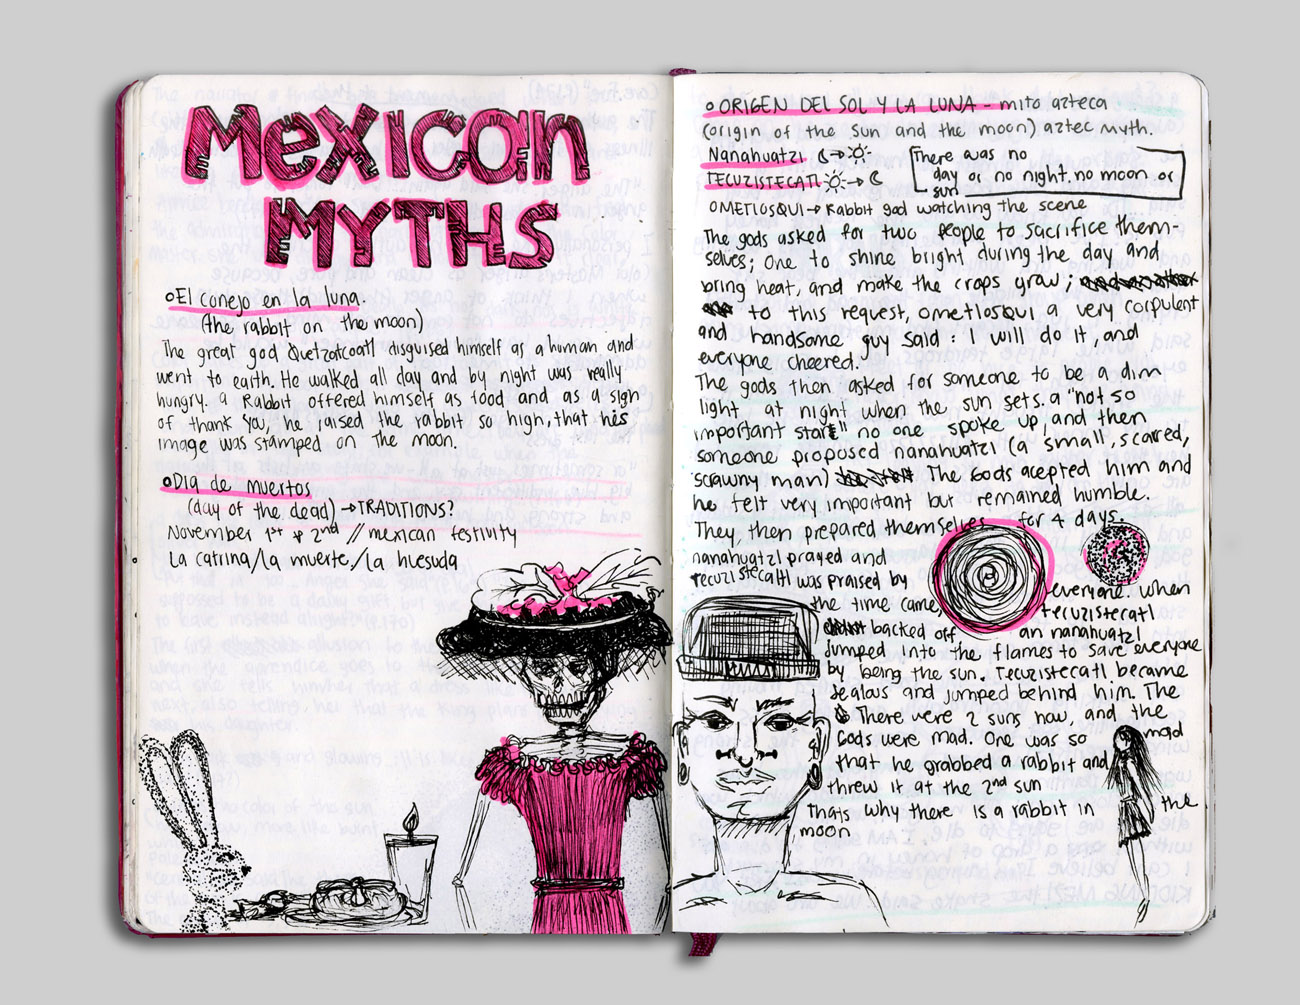 Mexican
MYTHS
El conejo en la luna.
(the rabbit on the moon)
The great god Quetzalcoatl disguised himself as a human and
went to earth. He walked all day and by night was really
hungry. a Rabbit offered himself as food and as a sign
of thank you, he raised the rabbit so high, that his
image was stamped on the moon.
Dia de muertos
(day of the dead) → TRADITIONS?
November 1st & 2nd // mexican festivity
La catrina/la muerte/la huesuda
ORIGEN DEL SOL Y LA LUNA - mito azteca
(origin of the sun and the moon) aztec myth.
Nanahuatzi
TECUZISTECATL
There was no
day or no night, no moon or
sun
OMETLOSQUI → Rabbit god watching the scene
The gods asked for two people to sacrifice them-
selves; One to shine bright during the day and
bring heat, and make the crops grow;
to this request, OMETLOSQUI a very corpulent
and handsome guy said: I will do it, and
everyone cheered.
The gods then asked for someone to be a dim
light at night when the sun sets. a "not so
important star" no one spoke up, and then
someone proposed nanahuatzi (a small, scarred,
scrawny man) The Gods acepted him and
he felt very important but remained humble.
They then prepared themselves for 4 days.
nanahuatzi prayed and
Tecuzistecatl was praised by everyone. when
the time came, tecuzistecatl
backed off an nanahuatzl
Jumped into the flames to save everyone
by being the sun. Tecuzistecatl became
Jealous and jumped behind him. The
There were 2 suns now, and the
Gods were mad. One was so mad
that he grabbed a rabbit and
threw it at the 2nd sun
Thats why there is a rabbit in the
moon